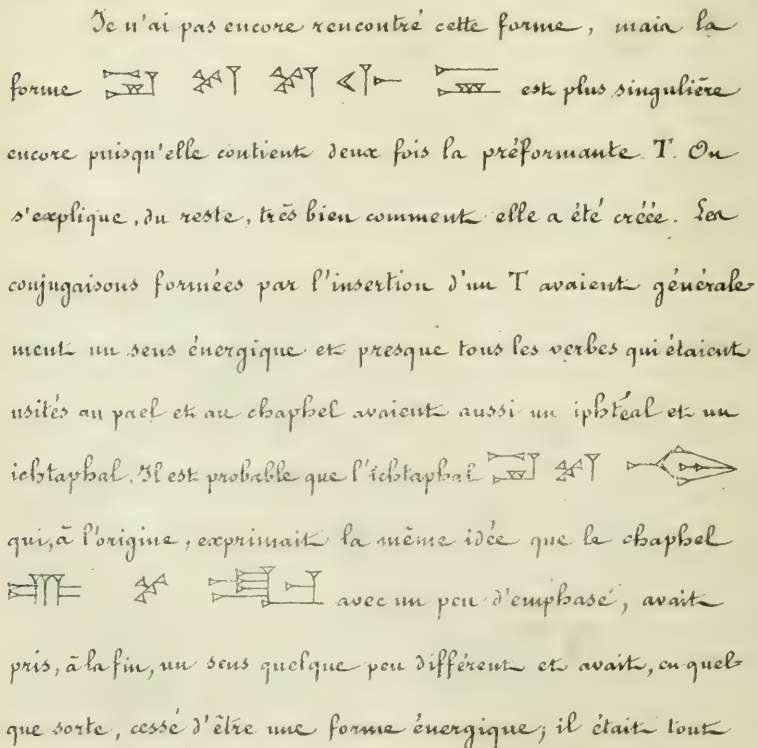 Je n'ai pas encore rencontré cette forme, mais la
forme est plus singulière
encore puisqu'elle contient deux fois la préformante T. On
s'explique, du reste, très bien comment elle a été créée. Les
conjugaisons formées par l'insertion d'un T avaient générale-
ment un sens énergique et presque tous les verbes qui étaient
usités au pael et au chaphel avaient aussi un iphtéal et un
ichtaphal. Il est probable que l'ichtaphal
qui, à l'origine, exprimait la même idée que le chaphel
avec un peu d'emphase, avait
pris, à la fin, un sens quelque peu différent et avait, en quel-
que sorte, cessé d'être une forme énergique; il était tout